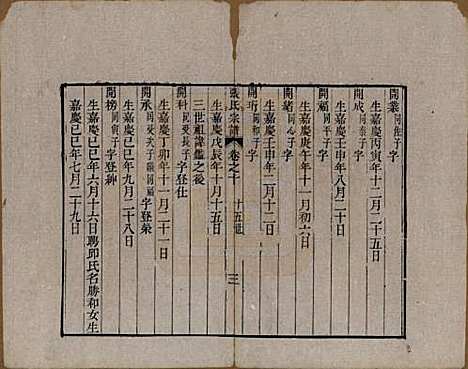 開業同組子字
生嘉慶丙寅年十二月二十五日
開成同泰子字
生嘉慶壬申年八月二十日
開福同平子字
生嘉慶庚午年十一月初六日
開緒同心子字
生嘉慶壬申年二月十二日
開珩同和子字
張氏宗譜 卷之十 十五世 三
生嘉慶戊辰年十月十五日
三世祖諱鑑之後
開科同興長子字登仕
生嘉慶丁卯年十一月二十一日
開承同興次子嗣同福字登榮
生嘉慶己巳年九月二十八日
開榜同寅子字登紳
生嘉慶己巳年六月十六日聘邱氏名勝和女生
嘉慶己巳年七月二十九日